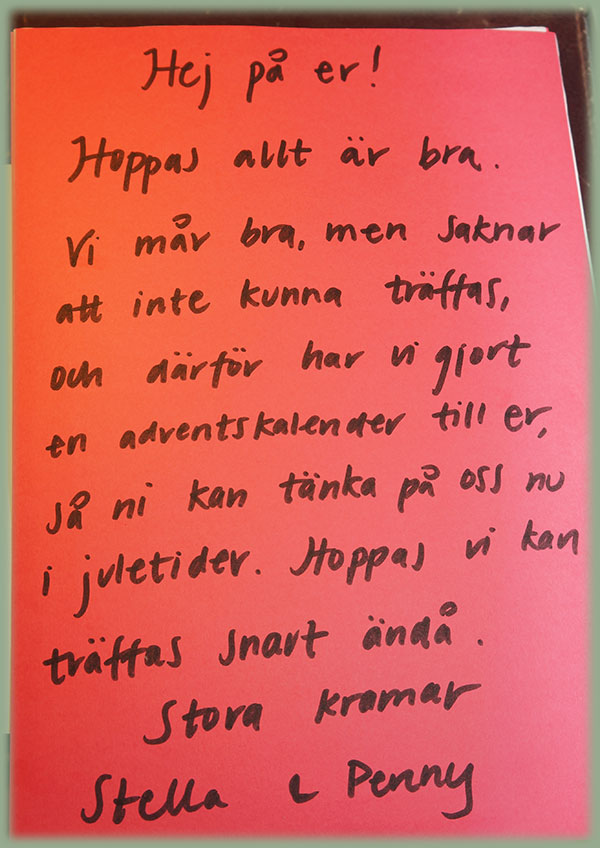 Hej på er!
Hoppas allt är bra.
Vi mår bra, men saknar
att inte kunna träffas,
och därför har vi gjort
en adventskalender till er,
så ni kan tänka på oss nu
i juletider. Hoppas vi kan
träffas snart ändå.
Stora kramar
Stella & Penny